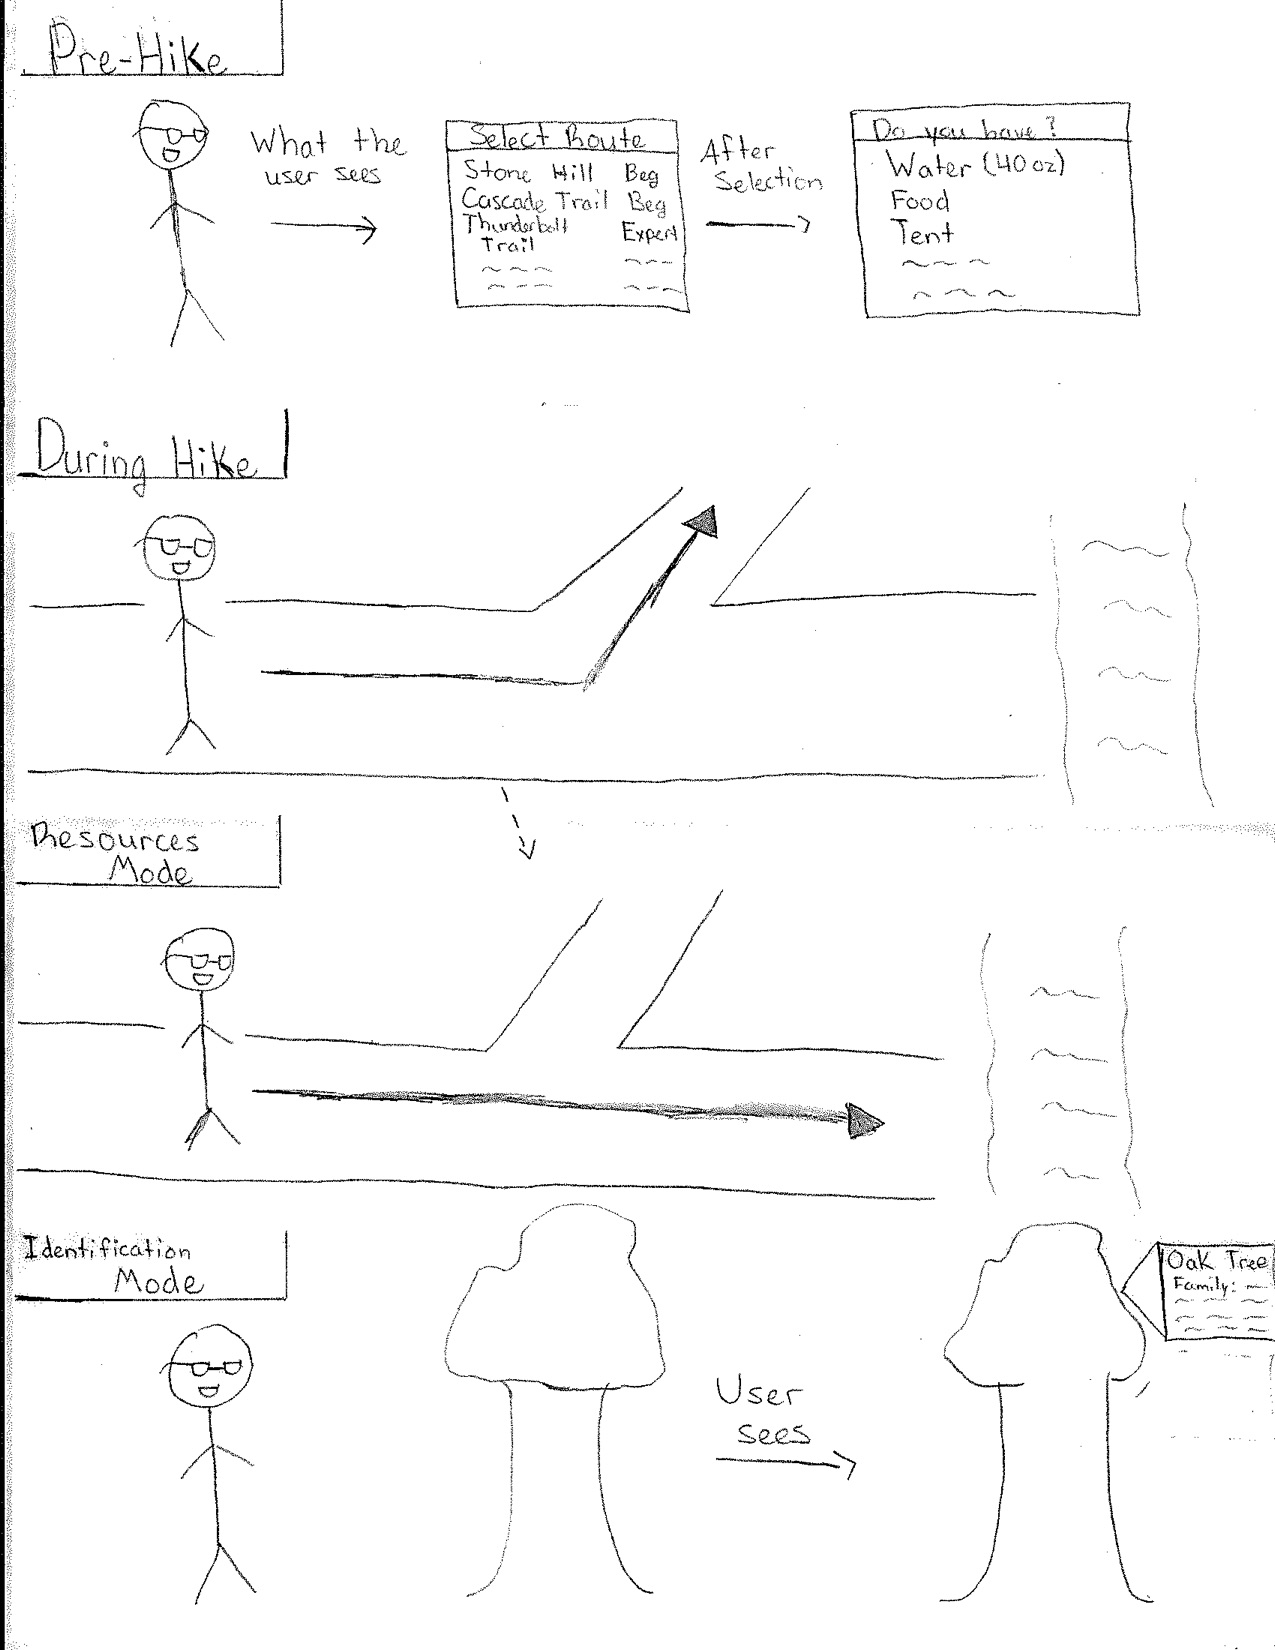 Pre-Hike
What the
user sees
Select Route
Stone Hill Beg
Cascade Trail Beg
Thunderbolt Expert
Trail
After
Selection
Do you have?
Water (40 oz)
Food
Tent
During Hike
Resources
Mode
Identification
Mode
User
sees
Oak Tree
Family: